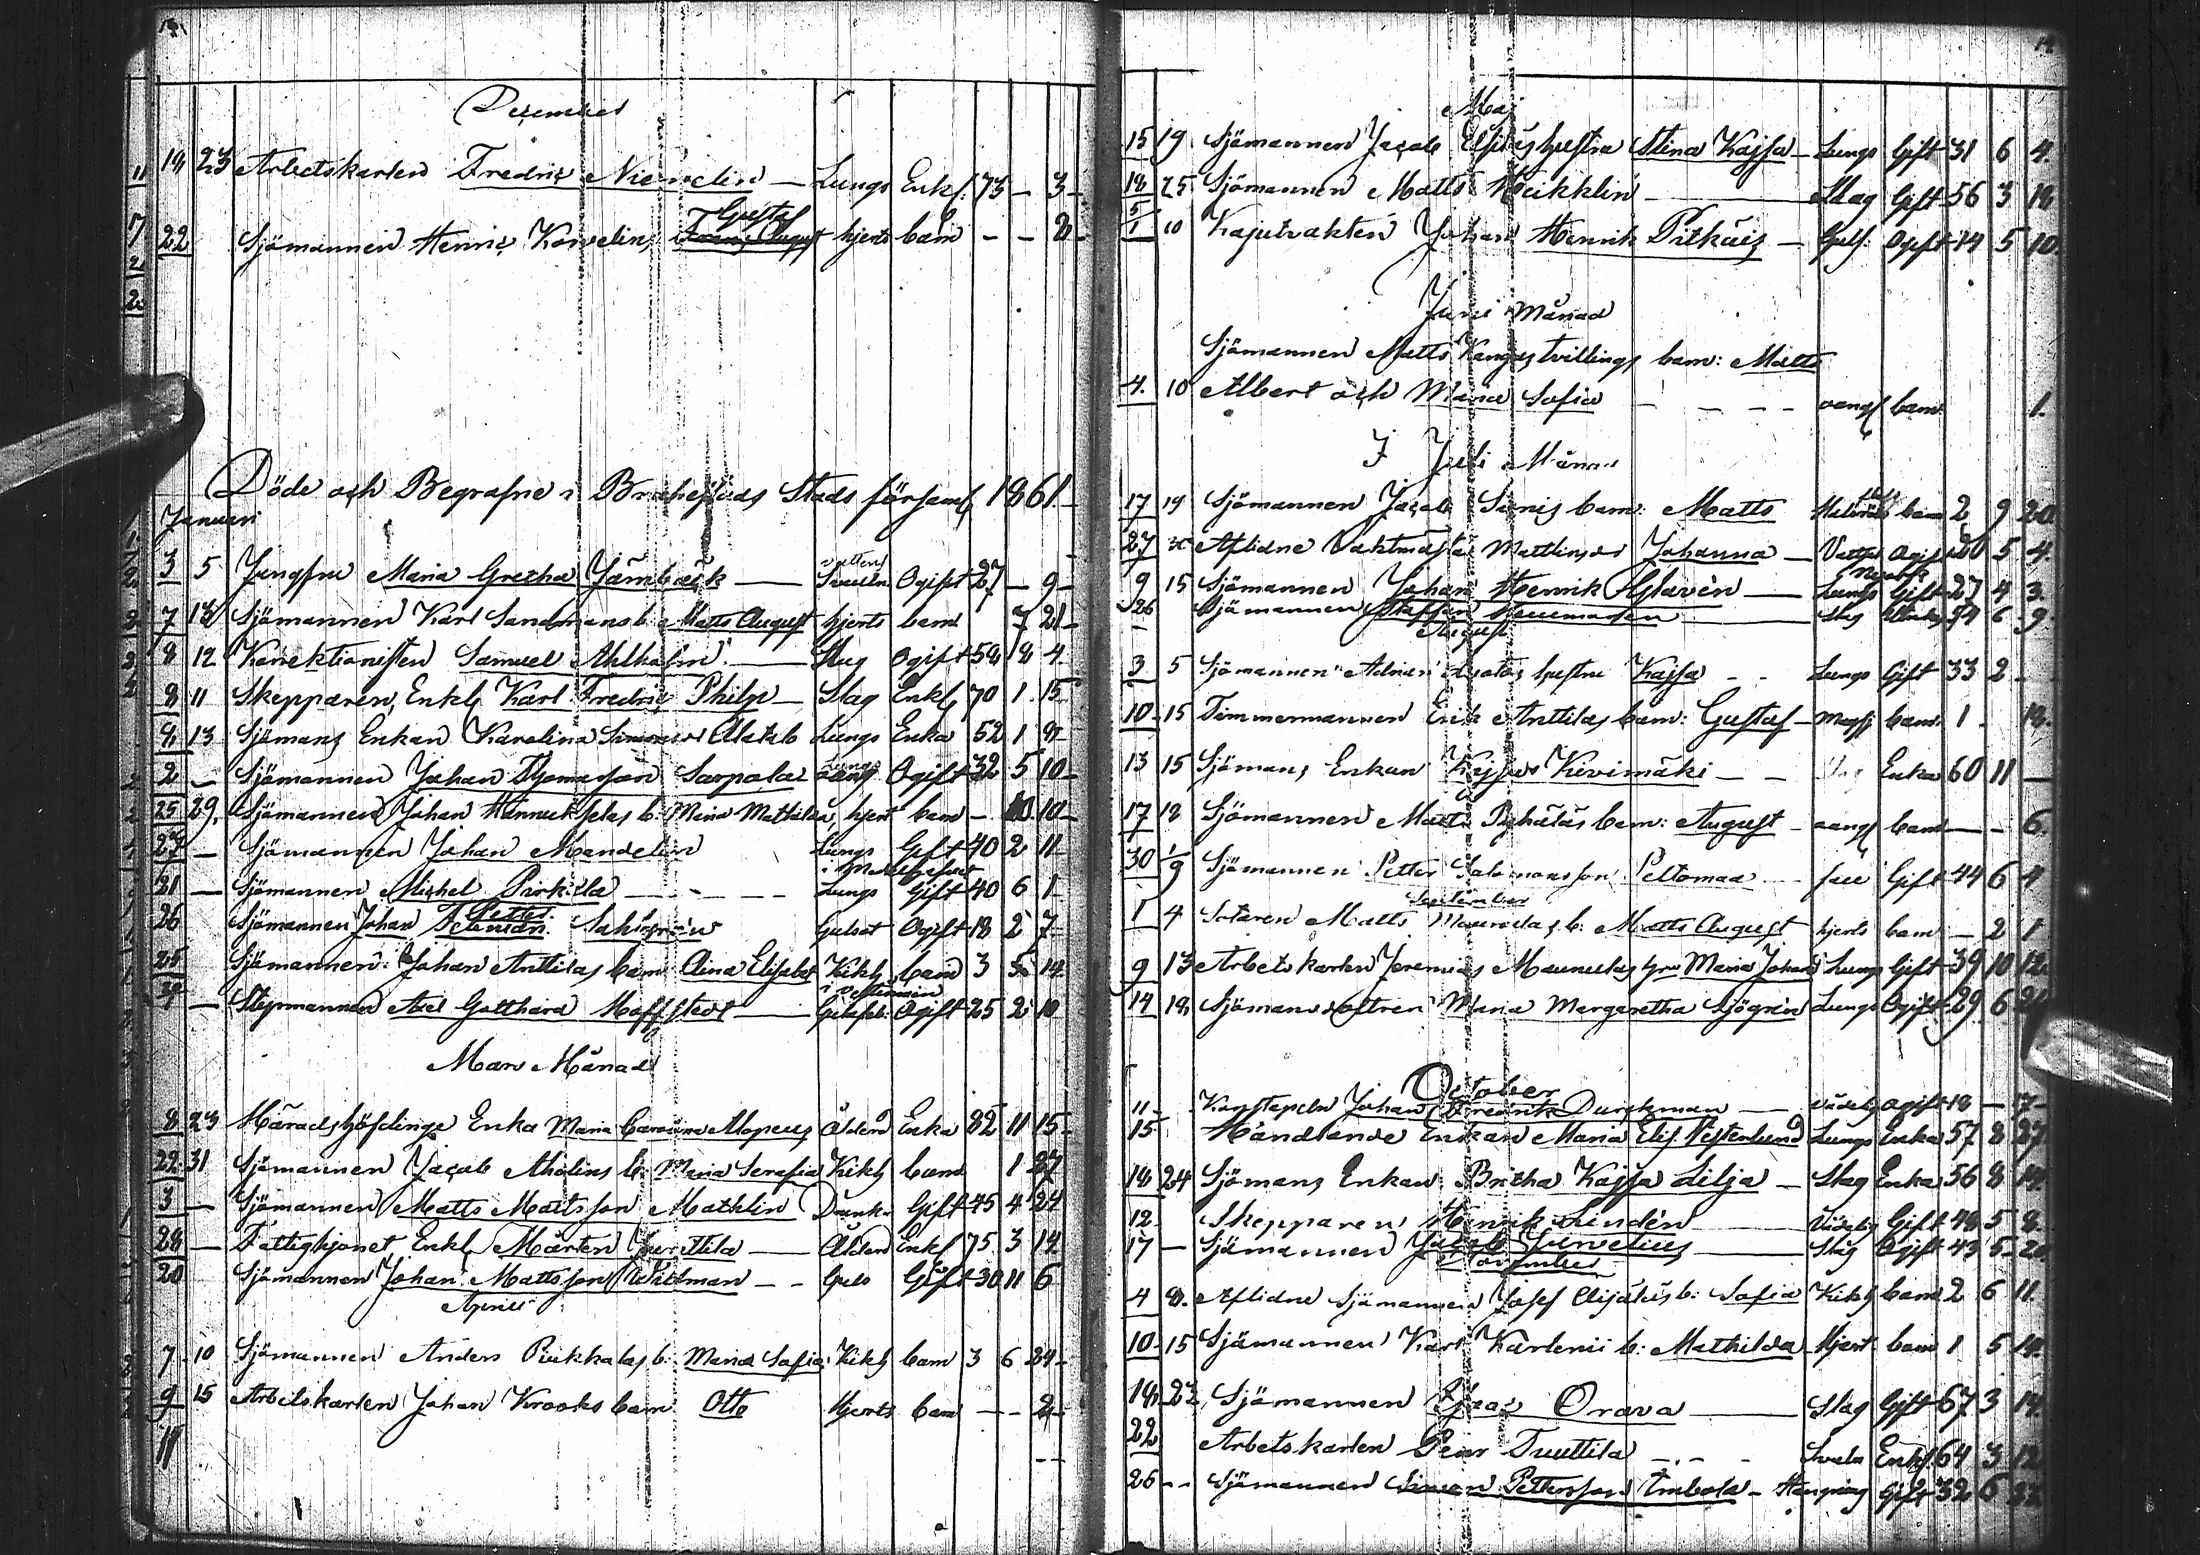 December
18 23 Arbetskarlen Fredric Niendelin — Lungs Enkl. 73 – 3 –
17 22 Sjömannen Henric Korvelins Gustaf Franz August hjerts barn – – 8
Döde och Begrafne i Brahestads Stads församl 1861.
Januari
3 5 Jungfru Maria Gretha Jämbäck — Ogift 27 – 9 –
7 13 Sjömannen Karl Sandmans b. Matts August hjerts barn 7 21 –
8 12 Korrektionisten Samuel Ahlholm — Slag Ogift 58 8 4.
8 11 Skepparen, Enkl Karl Fredric Philp — Slag Enkl 70 1 15
9 13 Sjömans Enkan Karolina Lungs Enka 52 1 9
2 – Sjömannen Johan Thomasson Sarpala Lungs Ogift 32 5 10 –
25 29. Sjömannen Johan Hannukselas b. Maria Mathilda hjert barn – 10 –
27 – Sjömannen Johan Mandelin Lungs Gift 40 2 11
i Medelhafvet
21 – Sjömannen Michel Parkila – – – – Lungs Gift 40 6 1
26 Sjömannen Johan Petter Gulsot Ogift 18 2 7
25 Sjömannen Johan Anttilas barn Elina Elisabet Kikh barn 3 5 14
– Styrmannen Axel Gotthard Hoffstedt — Ogift 25 2 10
Mars Månad
8 23 Häradshöfdinge Enka Maria Carolina Alopeus Ålderd Enka 82 11 15
22 31 Sjömannen Jacob Aholins b. Maria Serafia Kikh barn 1 27
3 – Sjömannen Matts Mattsson Mathlin Drunkn Gift 45 4 24
28 – Fattighjonet, Enkl Mårten Junttila — Ålderd Enkl 75 3 14
20 Sjömannen Johan Mattsson Widman – – Gift 30 11 6
April
7 10 Sjömannen Anders Pirkkalas b. Maria Sofia Kikh barn 3 6 24 –
9 15 Arbetskarlen Johan Krooks barn Otto Hjerts barn – – 2
11
Maj
15 19 Sjömannen Jacob hustru Stina Kajsa – Lungs Gift 31 6 4.
18 25 Sjömannen Matts Heikklin — Slag Gift 56 3 18
5/1 10 Kajutvakten Johan Henrik Pitkäis — Guls. Ogift 14 5 10
Juni Månad
Sjömannen Matts Kangas tvillings barn: Matts
4. 10 Albert och Maria Sofia – – – – oangf barn 1.
I Juli Månad
17 19 Sjömannen Jacob Sarvis barn: Matts barn 2 9 20
27 30 Aflidne Vaktmästar Mattlins dr Johanna — Ogift 20 5 4.
9 15 Sjömannen Johan Henrik — Lungs Gift 27 4 3.
26 Sjömannen Staffan — Slag 54 6 9
August
3 5 Sjömannen hustru Kajsa – – Lungs Gift 33 2 –
10 15 Timmermannen Erik Anttilas barn: Gustaf – Magsj barn 1 – 18.
13 15 Sjömans Enkan Kajsa Kivimäki – – Enka 60 11 –
17 18 Sjömannen Matts Pyhäläs barn: August – oangf barn – – 6.
30 1/9 Sjömannen Petter Salomonsson Peltomaa – Gift 44 6 4
September
1 4 Sotaren Matts Maunulas b. Matts August hjerts barn – 2 1
9 13 Arbetskarlen Jeremias Maunulas hru Maria Johana Lungs Gift 39 10 12
14 18 Sjömans dottren Maria Margaretha Sjögrén Lungs Ogift 29 6 21
October
11 – Konstapeln Johan Fredrik Durchman — Vådelig Ogift 18 – 17
15 Handlande Enkan Maria Elis. Vesterlund Lungs Enka 57 8 27
18 24 Sjömans Enkan Britha Kajsa Lilja – Slag Enka 56 8 14
12 – Skepparen Henrik Lindén — Vådelig Gift 48 5 8
17 – Sjömannen Jacob Jurvelius — Slag Ogift 43 5 20
November
4 8. Aflidne Sjömannen Josef Elijäläs b: Sofia Kikh barn 2 6 11.
10 15 Sjömannen Karl Karlenii b: Mathilda Hjert barn 1 5 14.
18 23 Sjömannen Orava — Slag Gift 67 3 14.
22 Arbetskarlen Tuuttila – – – Enkl. 64 3 12
26 – – Sjömannen Simon Pettersson Gift 32 6